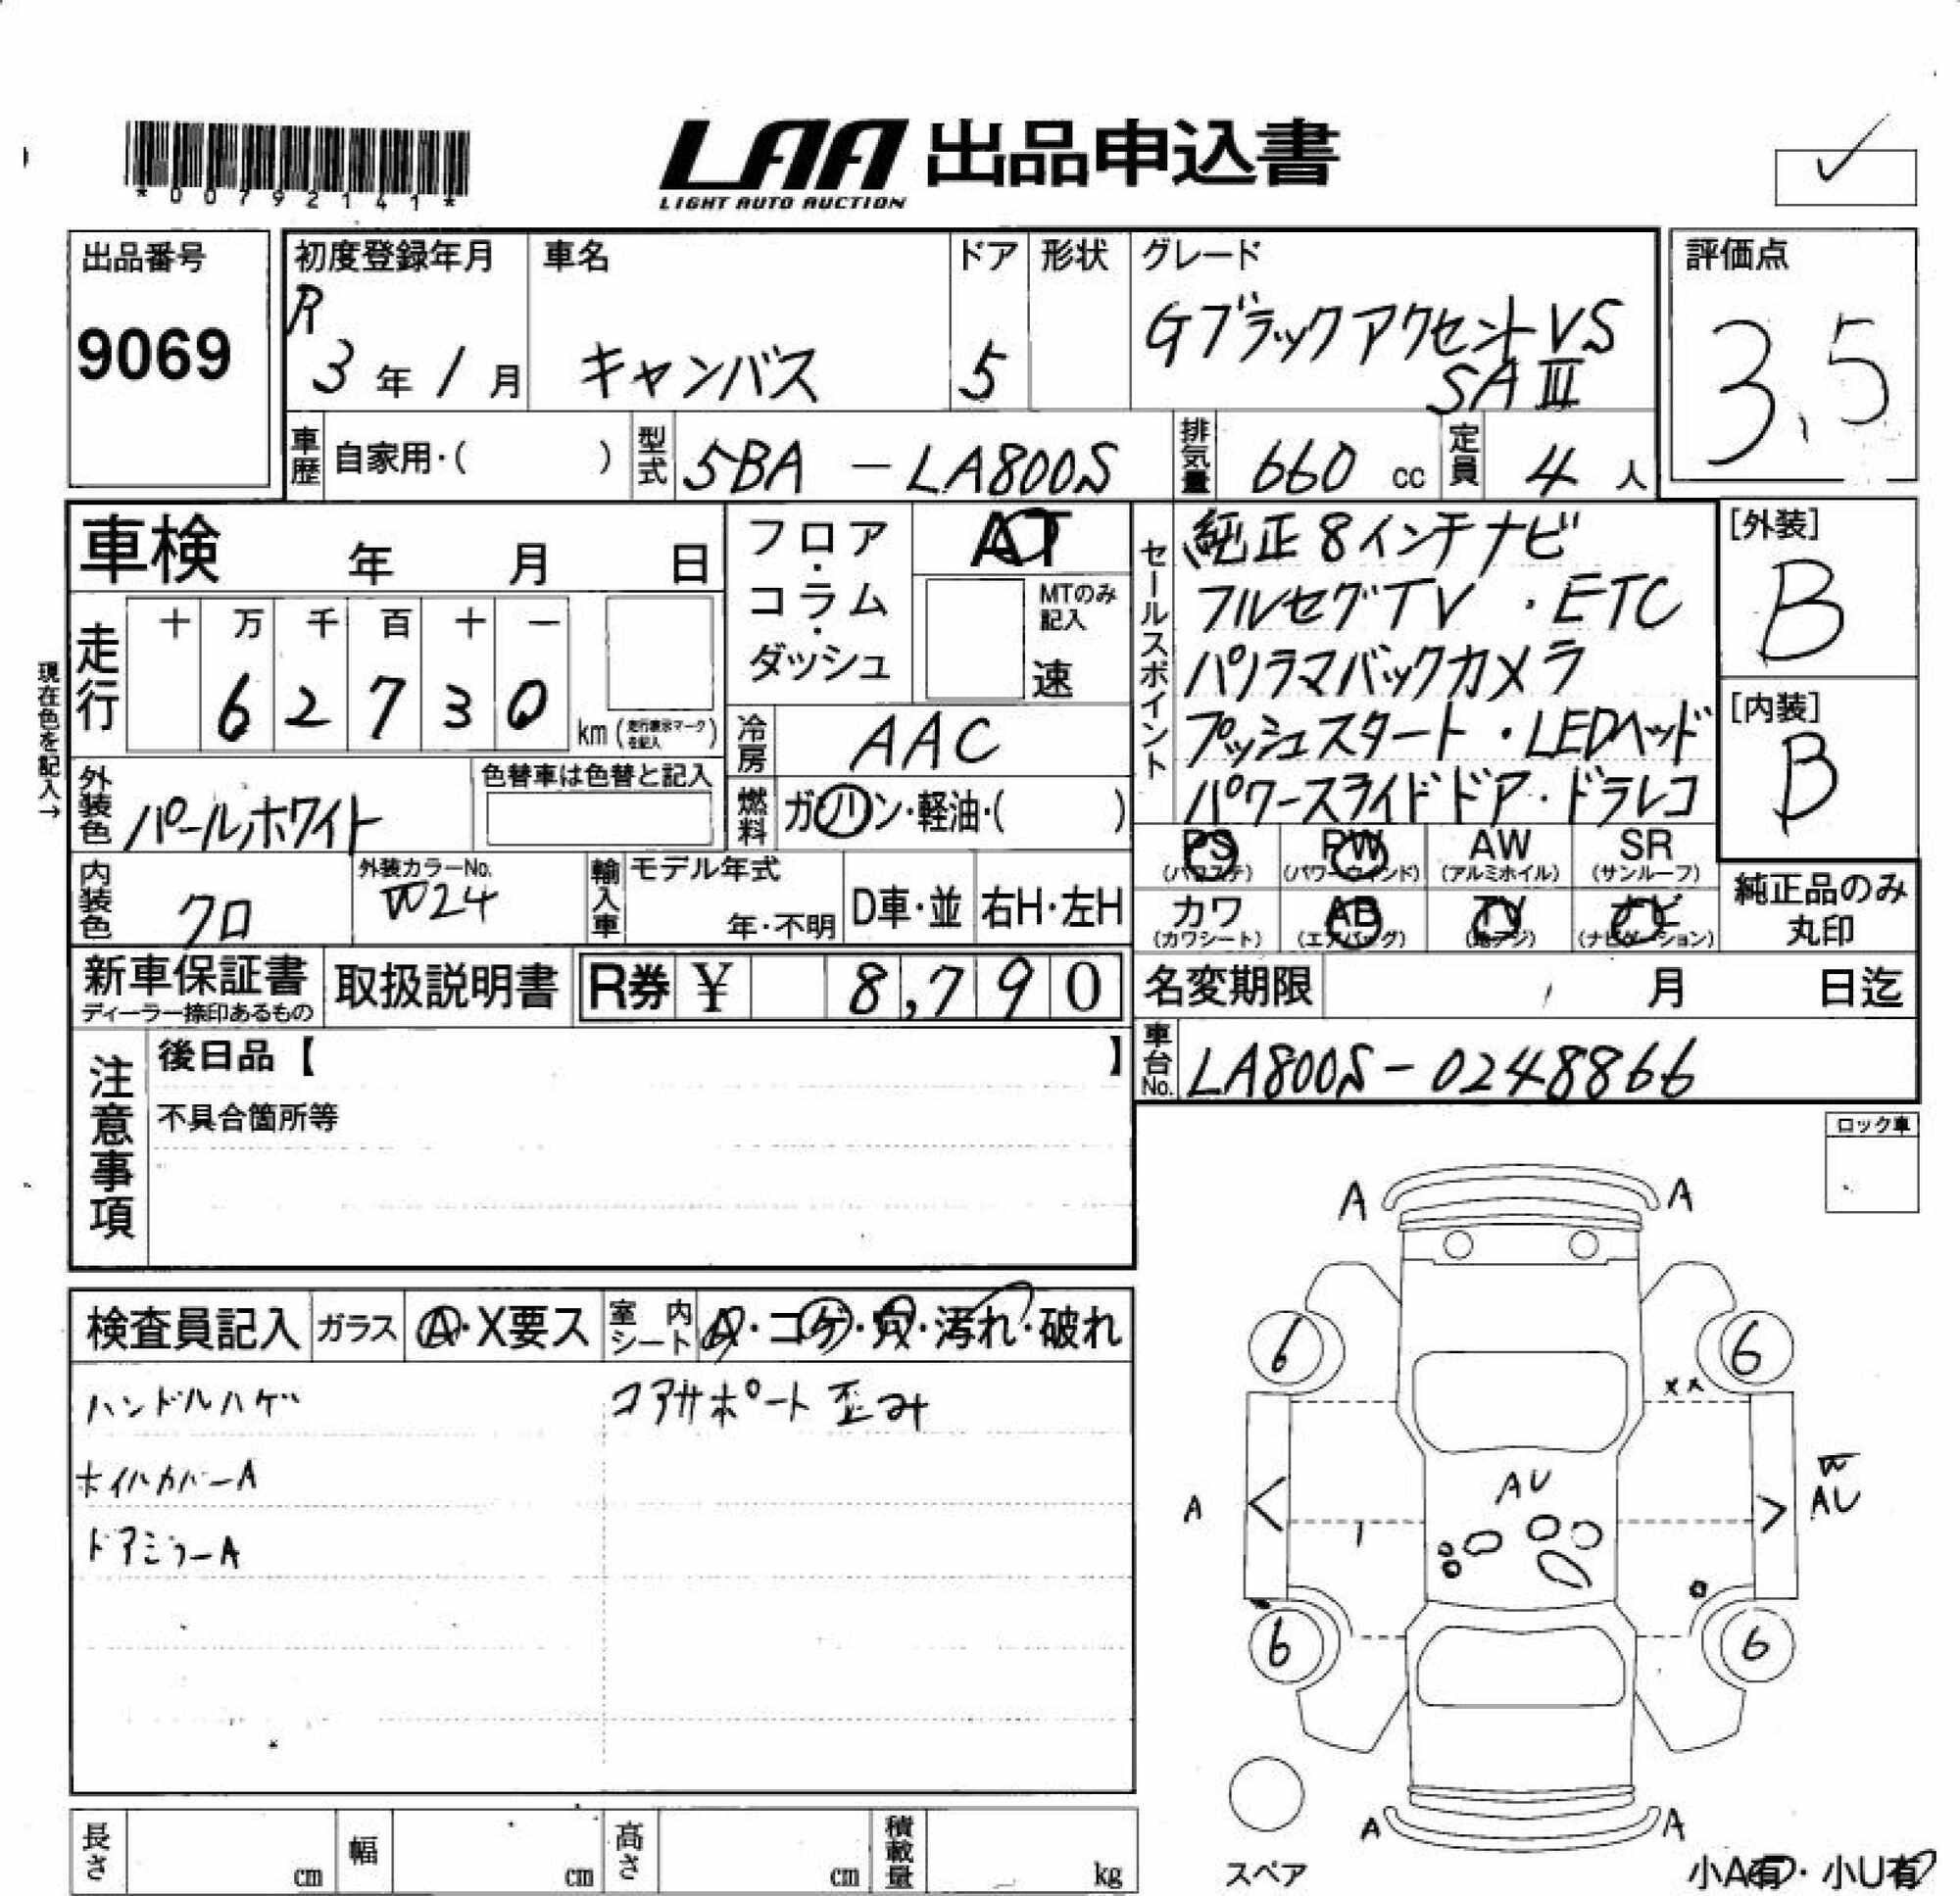 *00792141*
LAA 出品申込書
LIGHT AUTO AUCTION
✓
出品番号
9069
初度登録年月
R
3年1月
車名
キャンバス
ドア
5
形状
グレード
Gブラックアクセント VS
SAⅢ
評価点
3.5
車歴 自家用・( )
型式 5BA - LA800S
排気量 660 cc
定員 4 人
車検 年 月 日
フロア・コラム・ダッシュ
AT
MTのみ記入
速
セールスポイント
純正8インチナビ
フルセグTV ・ETC
パノラマバックカメラ
プッシュスタート ・LEDヘッド
パワースライドドア・ドラレコ
[外装]
B
[内装]
B
現在色を記入→
走行
十 万 千 百 十 一
6 2 7 3 0 km (走行表示マークを記入)
冷房 AAC
外装色 パールホワイト
色替車は色替と記入
燃料 ガソリン・軽油・( )
PS (パワステ)
PW (パワーウィンド)
AW (アルミホイル)
SR (サンルーフ)
カワ (カワシート)
AB (エアバッグ)
TV (地デジ)
ナビ (ナビゲーション)
純正品のみ
丸印
内装色 クロ
外装カラーNo.
W24
輸入車
モデル年式
年・不明
D車・並
右H・左H
新車保証書
ディーラー捺印あるもの
取扱説明書
R券 ¥ 8,790
名変期限 月 日迄
車台No. LA800S-0248866
注意事項
後日品【 】
不具合箇所等
ロック車
検査員記入
ガラス A・X要ス
室内シート A・コゲ・穴・汚れ・破れ
ハンドルハゲ コアサポート歪み
ホイルカバーA
ドアミラーA
A A
6 6
XX
AU
A
W
AU
1
6 6
A A
スペア
小A有・小U有
長さ cm
幅 cm
高さ cm
積載量 kg